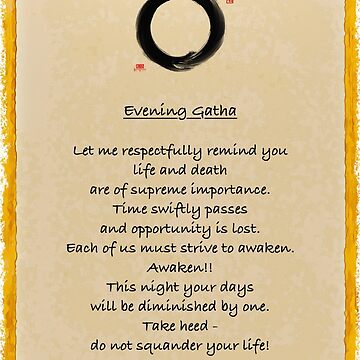 Evening Gatha
Let me respectfully remind you
life and death
are of supreme importance.
Time swiftly passes
and opportunity is lost.
Each of us must strive to awaken.
Awaken!!
This night your days
will be diminished by one.
Take heed -
do not squander your life!